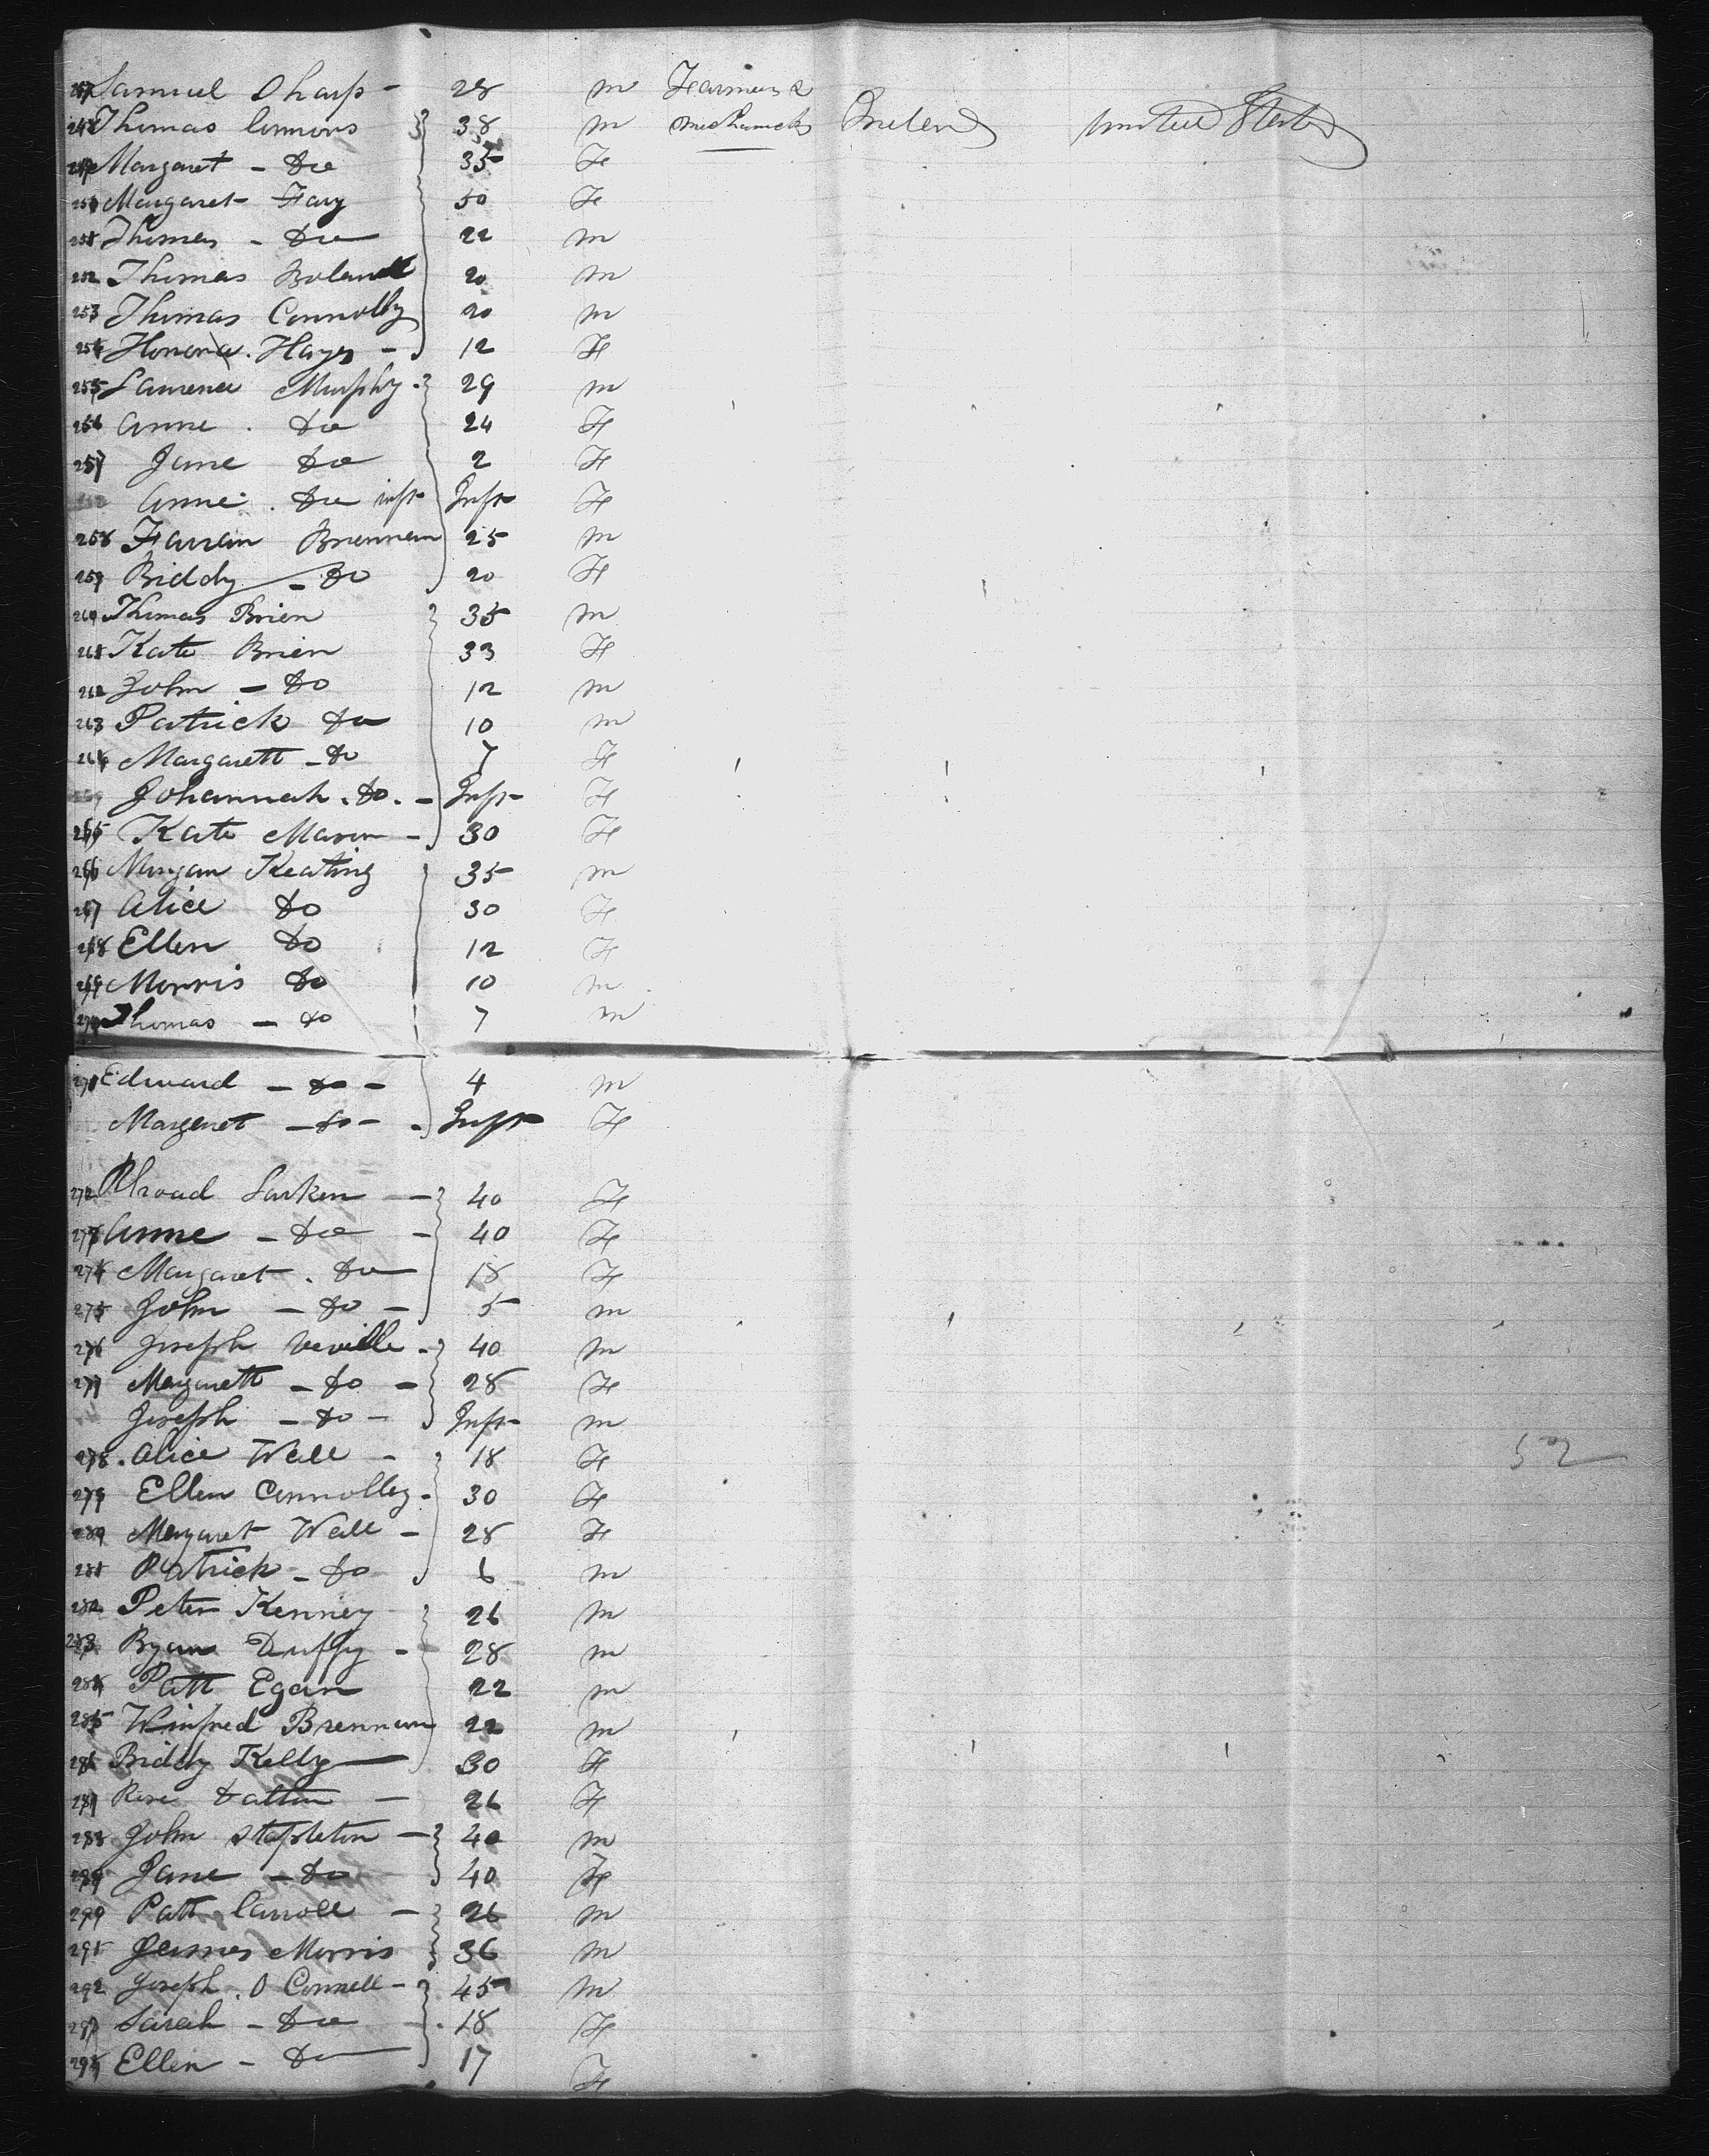 247 Samuel Sharp - 28 m Farmers &
248 Thomas Connors 38 m mechanicks Ireland United States
249 Margaret - Do 35 F
250 Margaret Fary 50 F
251 Thomas - Do 22 m
252 Thomas Boland 20 m
253 Thomas Connolly 20 m
254 Honora. Hayes - 12 F
255 Laurence Murphy. 29 m
256 Anne . Do 24 F
257 Jane Do 2 F
Anne . Do inft Inft F
258 Farran Brennan 25 m
259 Biddy - Do 20 F
260 Thomas Brien 35 m
261 Kate Brien 33 F
262 John - Do 12 m
263 Patrick Do 10 m
264 Margarett - Do 7 F
Johannah . Do . - Inft F
265 Kate Mason - 30 F
266 Morgan Keating 35 m
267 Alice Do 30 F
268 Ellen Do 12 F
269 Morris Do 10 m
270 Thomas - Do 7 m
271 Edward - Do - 4 m
Margaret - Do - Inft F
272 Larken - 40 F
273 Anne - Do - 40 F
274 Margaret . Do 18 F
275 John - Do - 5 m
276 Joseph Neville - 40 m
277 Margarett - Do - 28 F
Joseph - Do - Inft m
278 . Alice Wall - 18 F
279 Ellen Connolly - 30 F
280 Margaret Wall - 28 F
281 Patrick - Do 6 m
52
282 Peter Kenney 26 m
283 Bryan Duffy - 28 m
284 Patt Egan 22 m
285 Winfred Brennan 22 m
286 Biddy Kelly 30 F
287 Rose Dalton - 26 F
288 John Stapleton - 40 m
289 Jane - Do 40 F
290 Patt Carroll - 26 m
291 James Morris 36 m
292 Joseph . O Connell - 45 m
293 Sarah - Do - 18 F
294 Ellen - Do 17 F